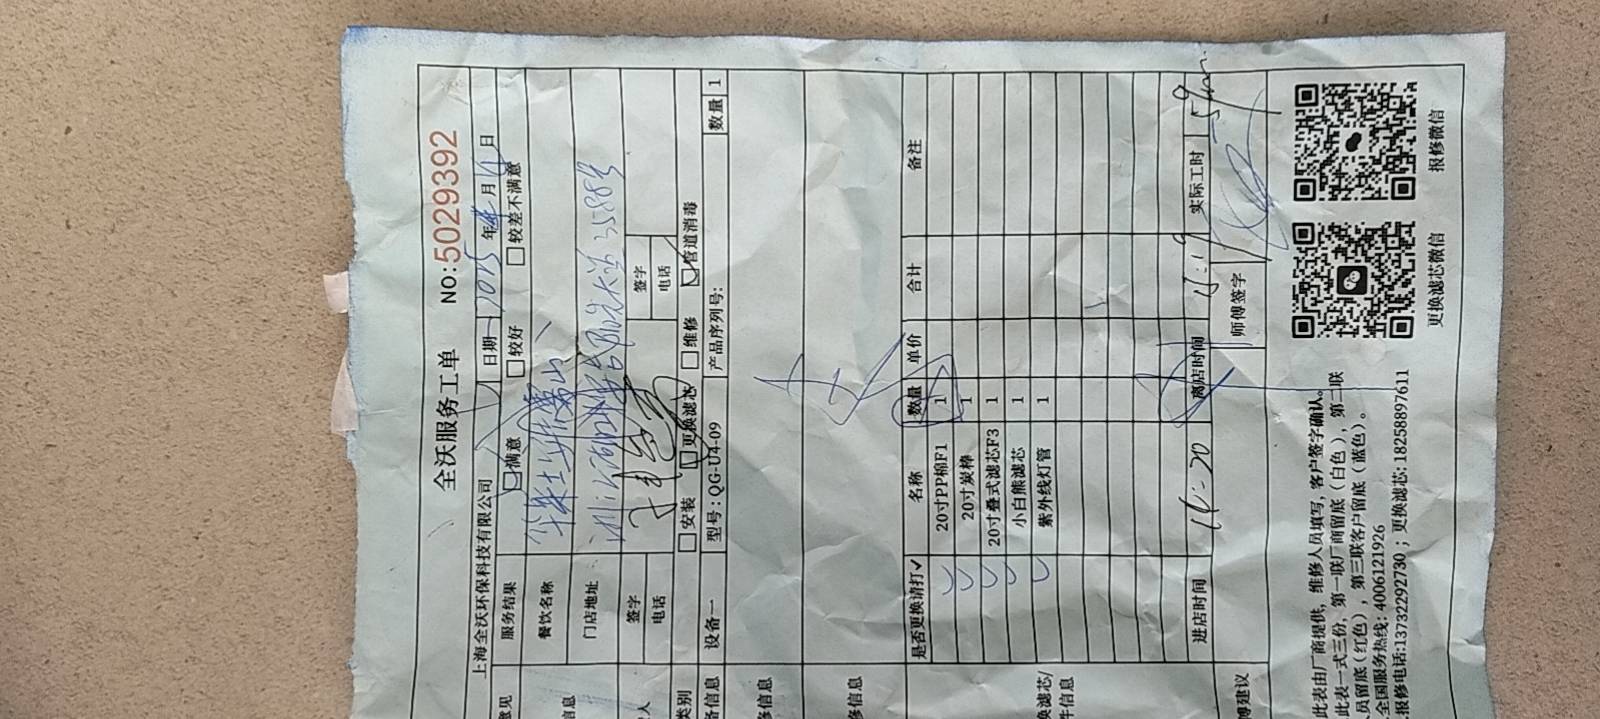 全沃服务工单
NO:5029392
上海全沃环保科技有限公司
日期 2025年 月 日
意见
服务结果
满意
较好
较差不满意
信息
餐饮名称
门店地址
签字
签字
电话
电话
类别
安装
更换滤芯
维修
管道消毒
备信息
设备一
型号:QG-U4-09
产品序列号:
数量 1
修信息
修信息
换滤芯/
件信息
是否更换请打✓ 名称 数量 单价 合计 备注
✓ 20寸PP棉F1 1
✓ 20寸炭棒 1
✓ 20寸叠式滤芯F3 1
✓ 小白熊滤芯 1
✓ 紫外线灯管 1
进店时间 14:20 离店时间 15:19 实际工时 59min
傅建议
师傅签字
此表由厂商提供,维修人员填写,客户签字确认。
此表一式三份,第一联厂商留底(白色),第二联
人员留底(红色),第三联客户留底(蓝色)。
全国服务热线:4006121926
报修电话:13732292730;更换滤芯:18258897611
更换滤芯微信
报修微信